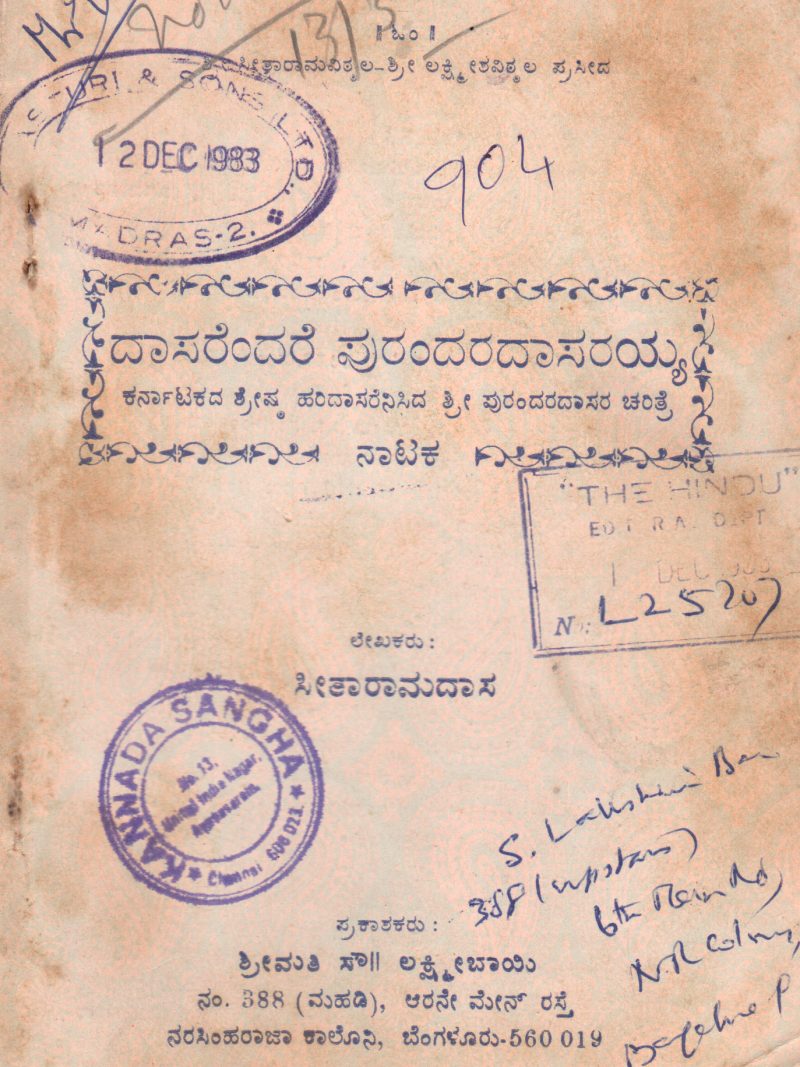 ॥ ಓಂ ॥
ಶ್ರೀ ಸೀತಾರಾಮವಿಠ್ಠಲ-ಶ್ರೀ ಲಕ್ಷ್ಮೀಶವಿಠ್ಠಲ ಪ್ರಸೀದ
& SONS LTD.,
12 DEC 1983
MADRAS-2.
904
ದಾಸರೆಂದರೆ ಪುರಂದರದಾಸರಯ್ಯ
ಕರ್ನಾಟಕದ ಶ್ರೇಷ್ಠ ಹರಿದಾಸರೆನಿಸಿದ ಶ್ರೀ ಪುರಂದರದಾಸರ ಚರಿತ್ರೆ
ನಾಟಕ
"THE HINDU"
DEC 1983
No. L25207
ಲೇಖಕರು :
ಸೀತಾರಾಮದಾಸ
KANNADA SANGHA
No. 13,
Chennai 600 023.
S. Lakshmi Bai
388 (upstairs)
6th Main Rd,
N R Colony,
ಪ್ರಕಾಶಕರು :
ಶ್ರೀಮತಿ ಸೌ॥ ಲಕ್ಷ್ಮೀಬಾಯಿ
ನಂ. 388 (ಮಹಡಿ), ಆರನೇ ಮೇನ್ ರಸ್ತೆ
ನರಸಿಂಹರಾಜಾ ಕಾಲೊನಿ, ಬೆಂಗಳೂರು-560 019